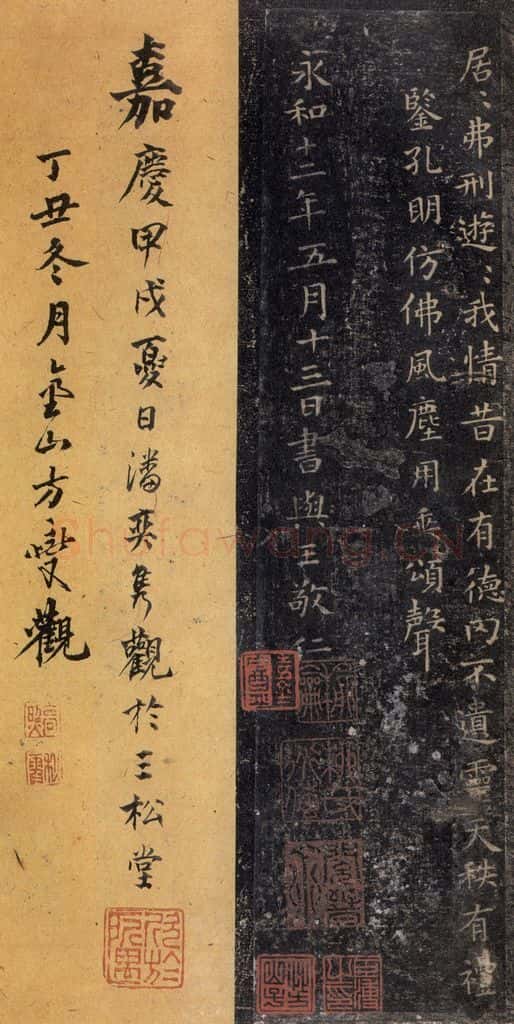 居〻弗刑遊〻我情昔在有德罔不遺靈天秩有禮
鑒孔明仿佛風塵用垂頌聲
永和十二年五月十三日書與王敬仁
嘉慶甲戌夏日潘奕雋觀於三松堂
丁丑冬月金山方燮觀
Shufawang.CN